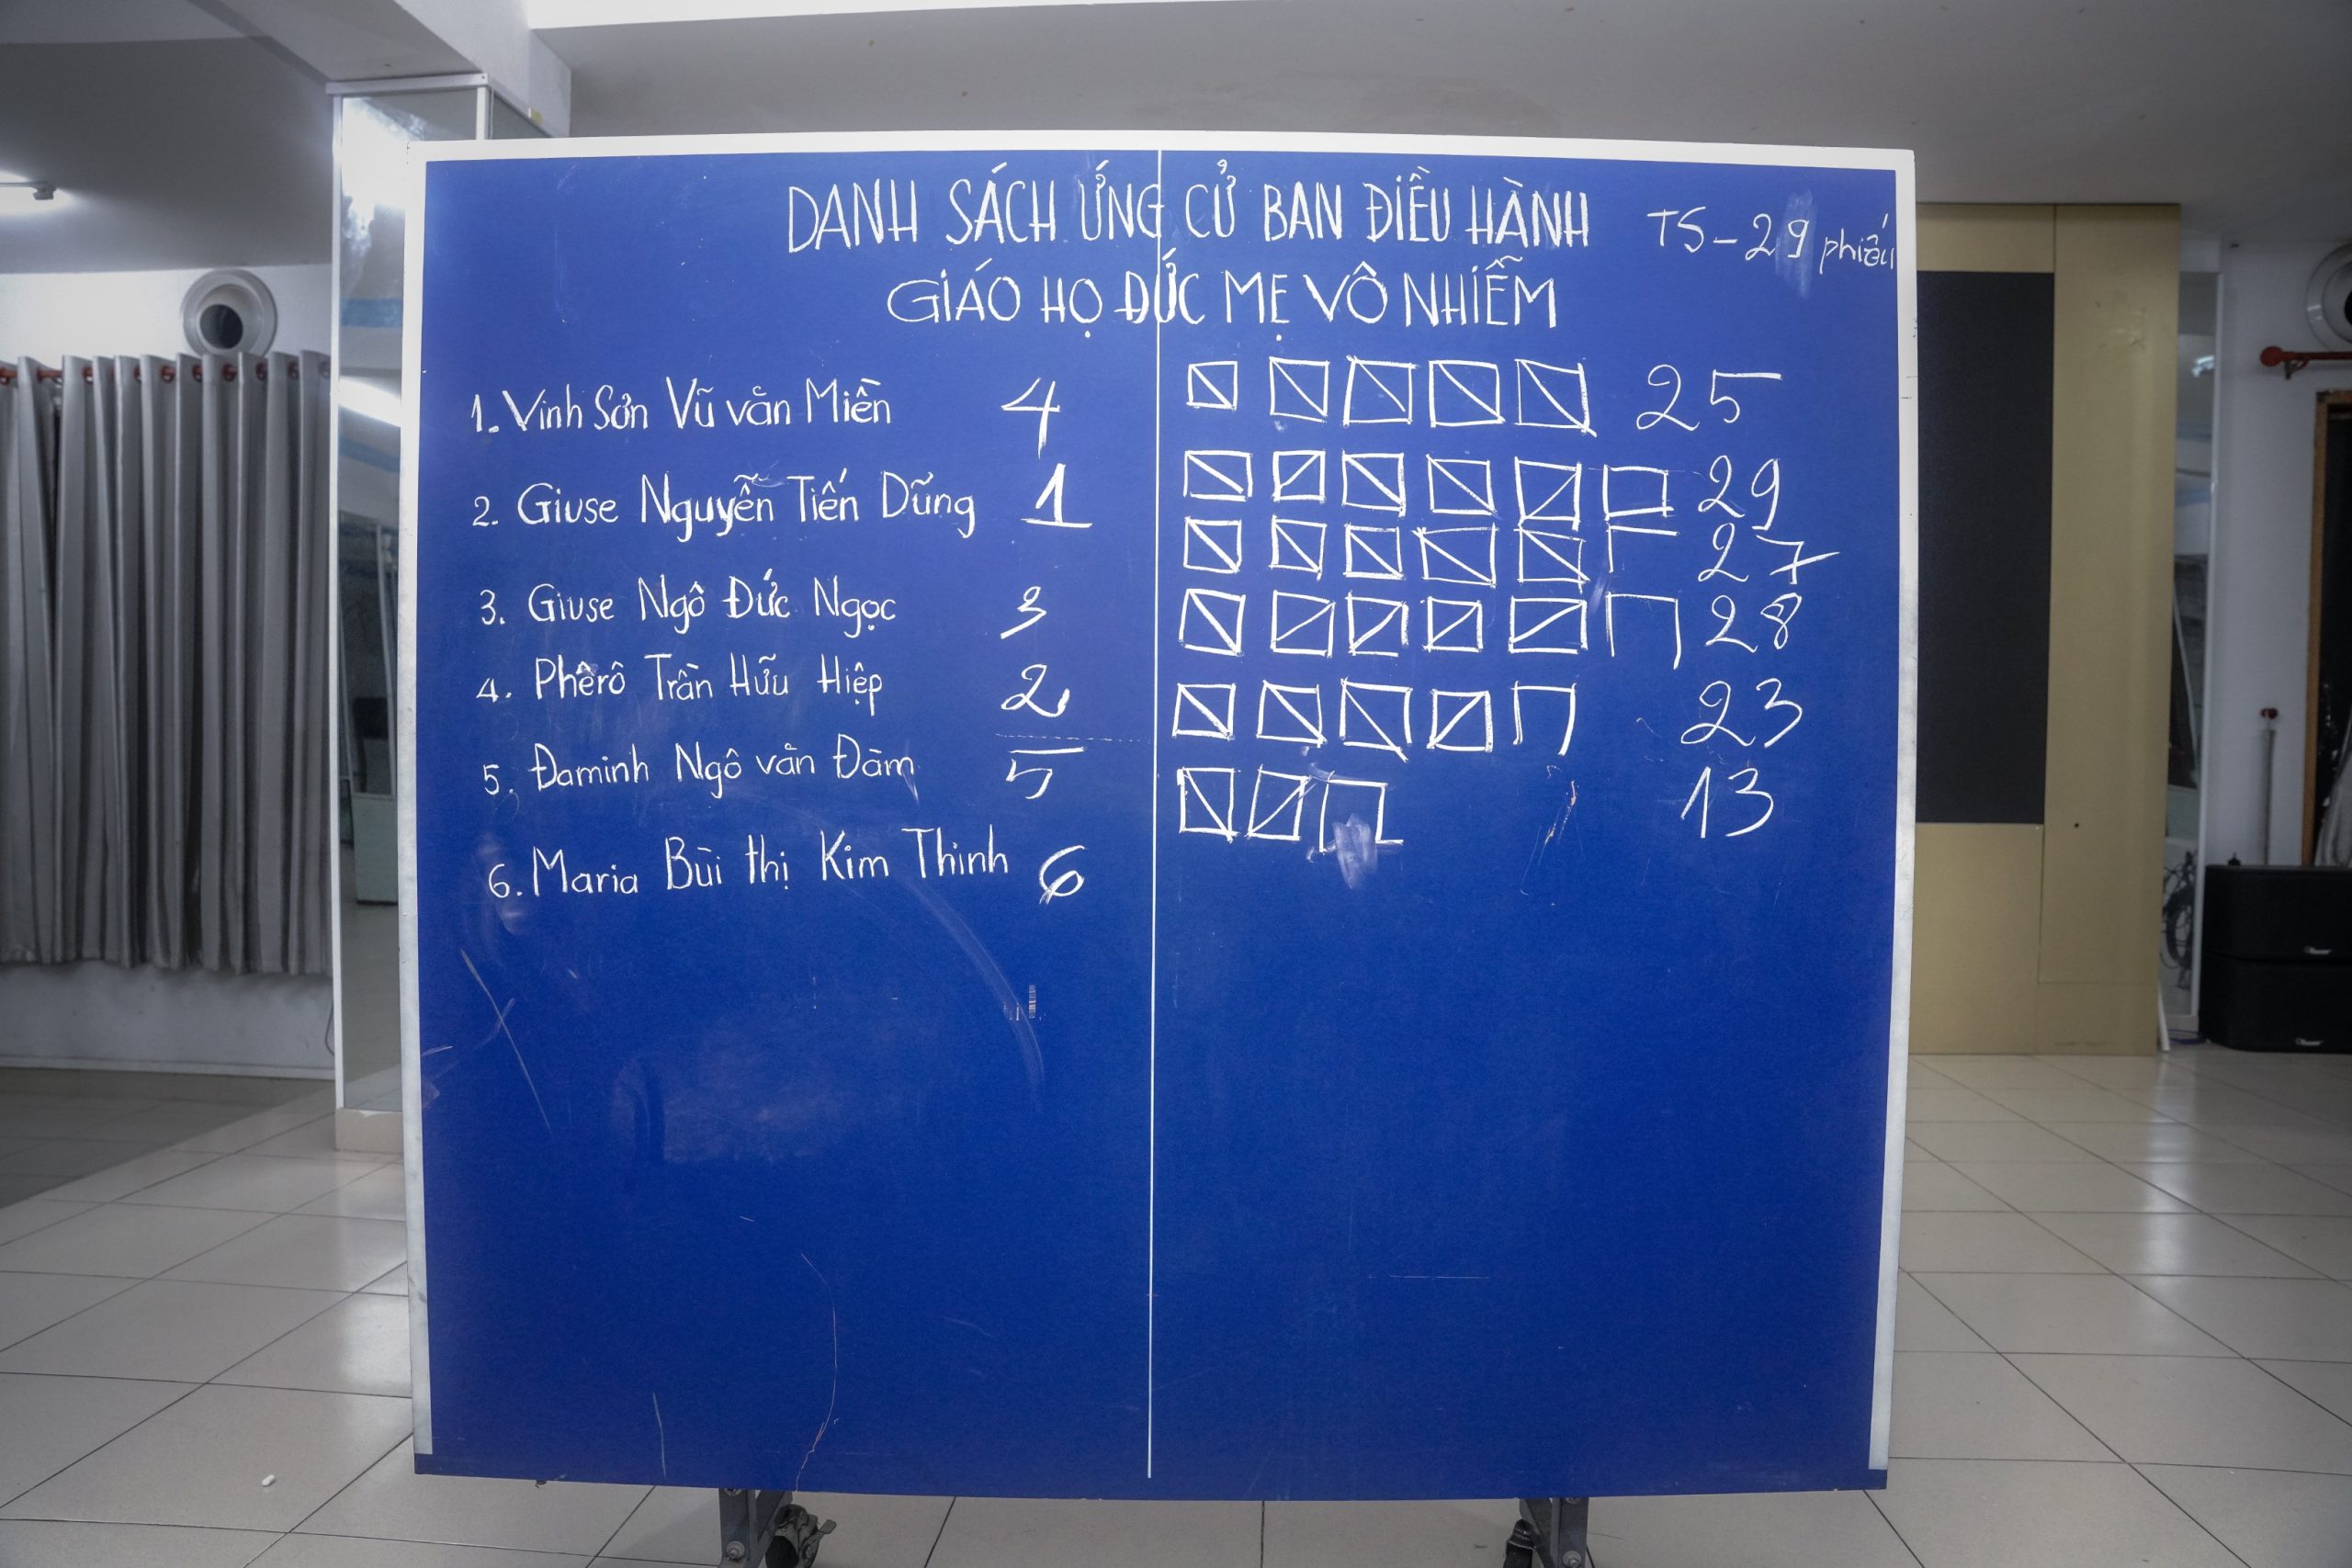 DANH SÁCH ỨNG CỬ BAN ĐIỀU HÀNH
TS - 29 phiếu
GIÁO HỌ ĐỨC MẸ VÔ NHIỄM
1. Vinh Sơn Vũ văn Miền 4 25
2. Giuse Nguyễn Tiến Dũng 1 29
3. Giuse Ngô Đức Ngọc 3 27
4. Phêrô Trần Hữu Hiệp 2 28
5. Đaminh Ngô văn Đàm 5 23
6. Maria Bùi thị Kim Thinh 6 13